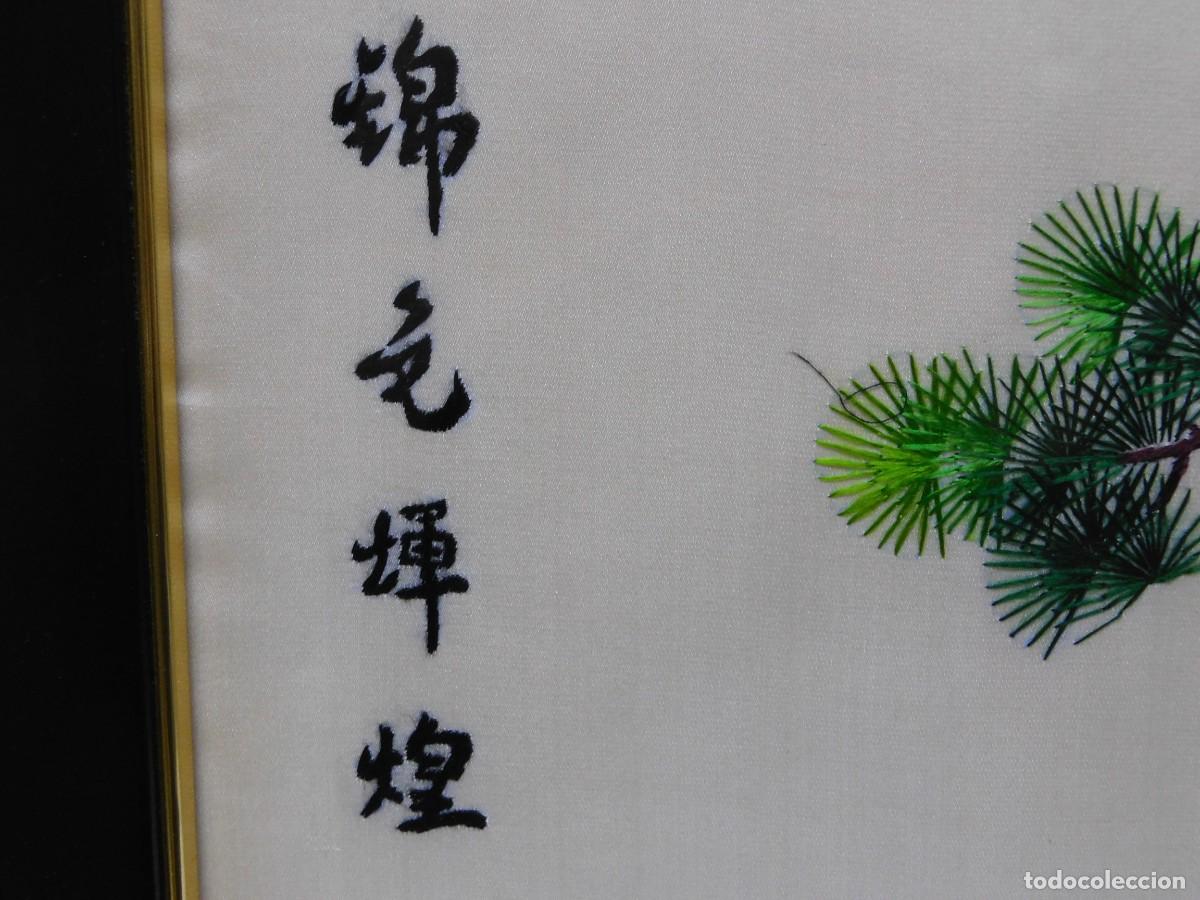 錦色煇煌
todocoleccion